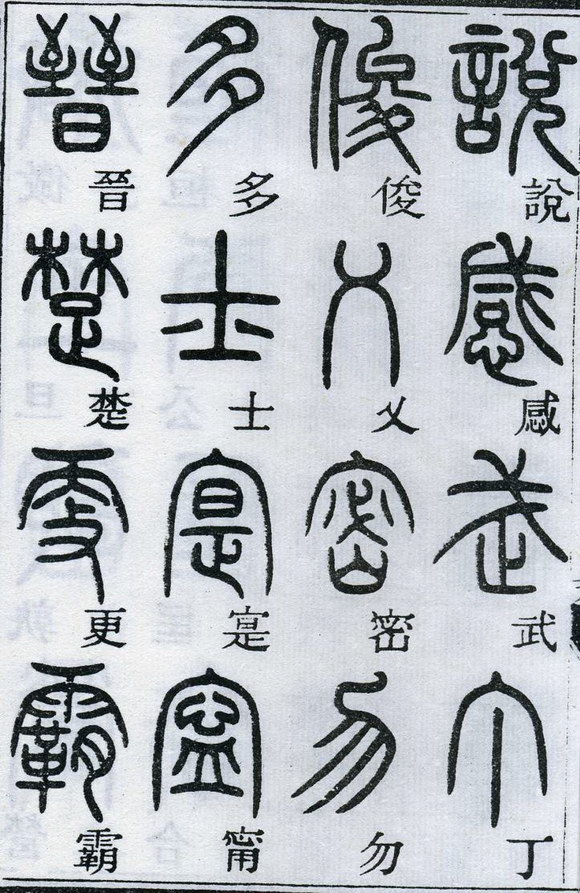 說感武丁
俊乂密勿
多士寔甯
晉楚更霸